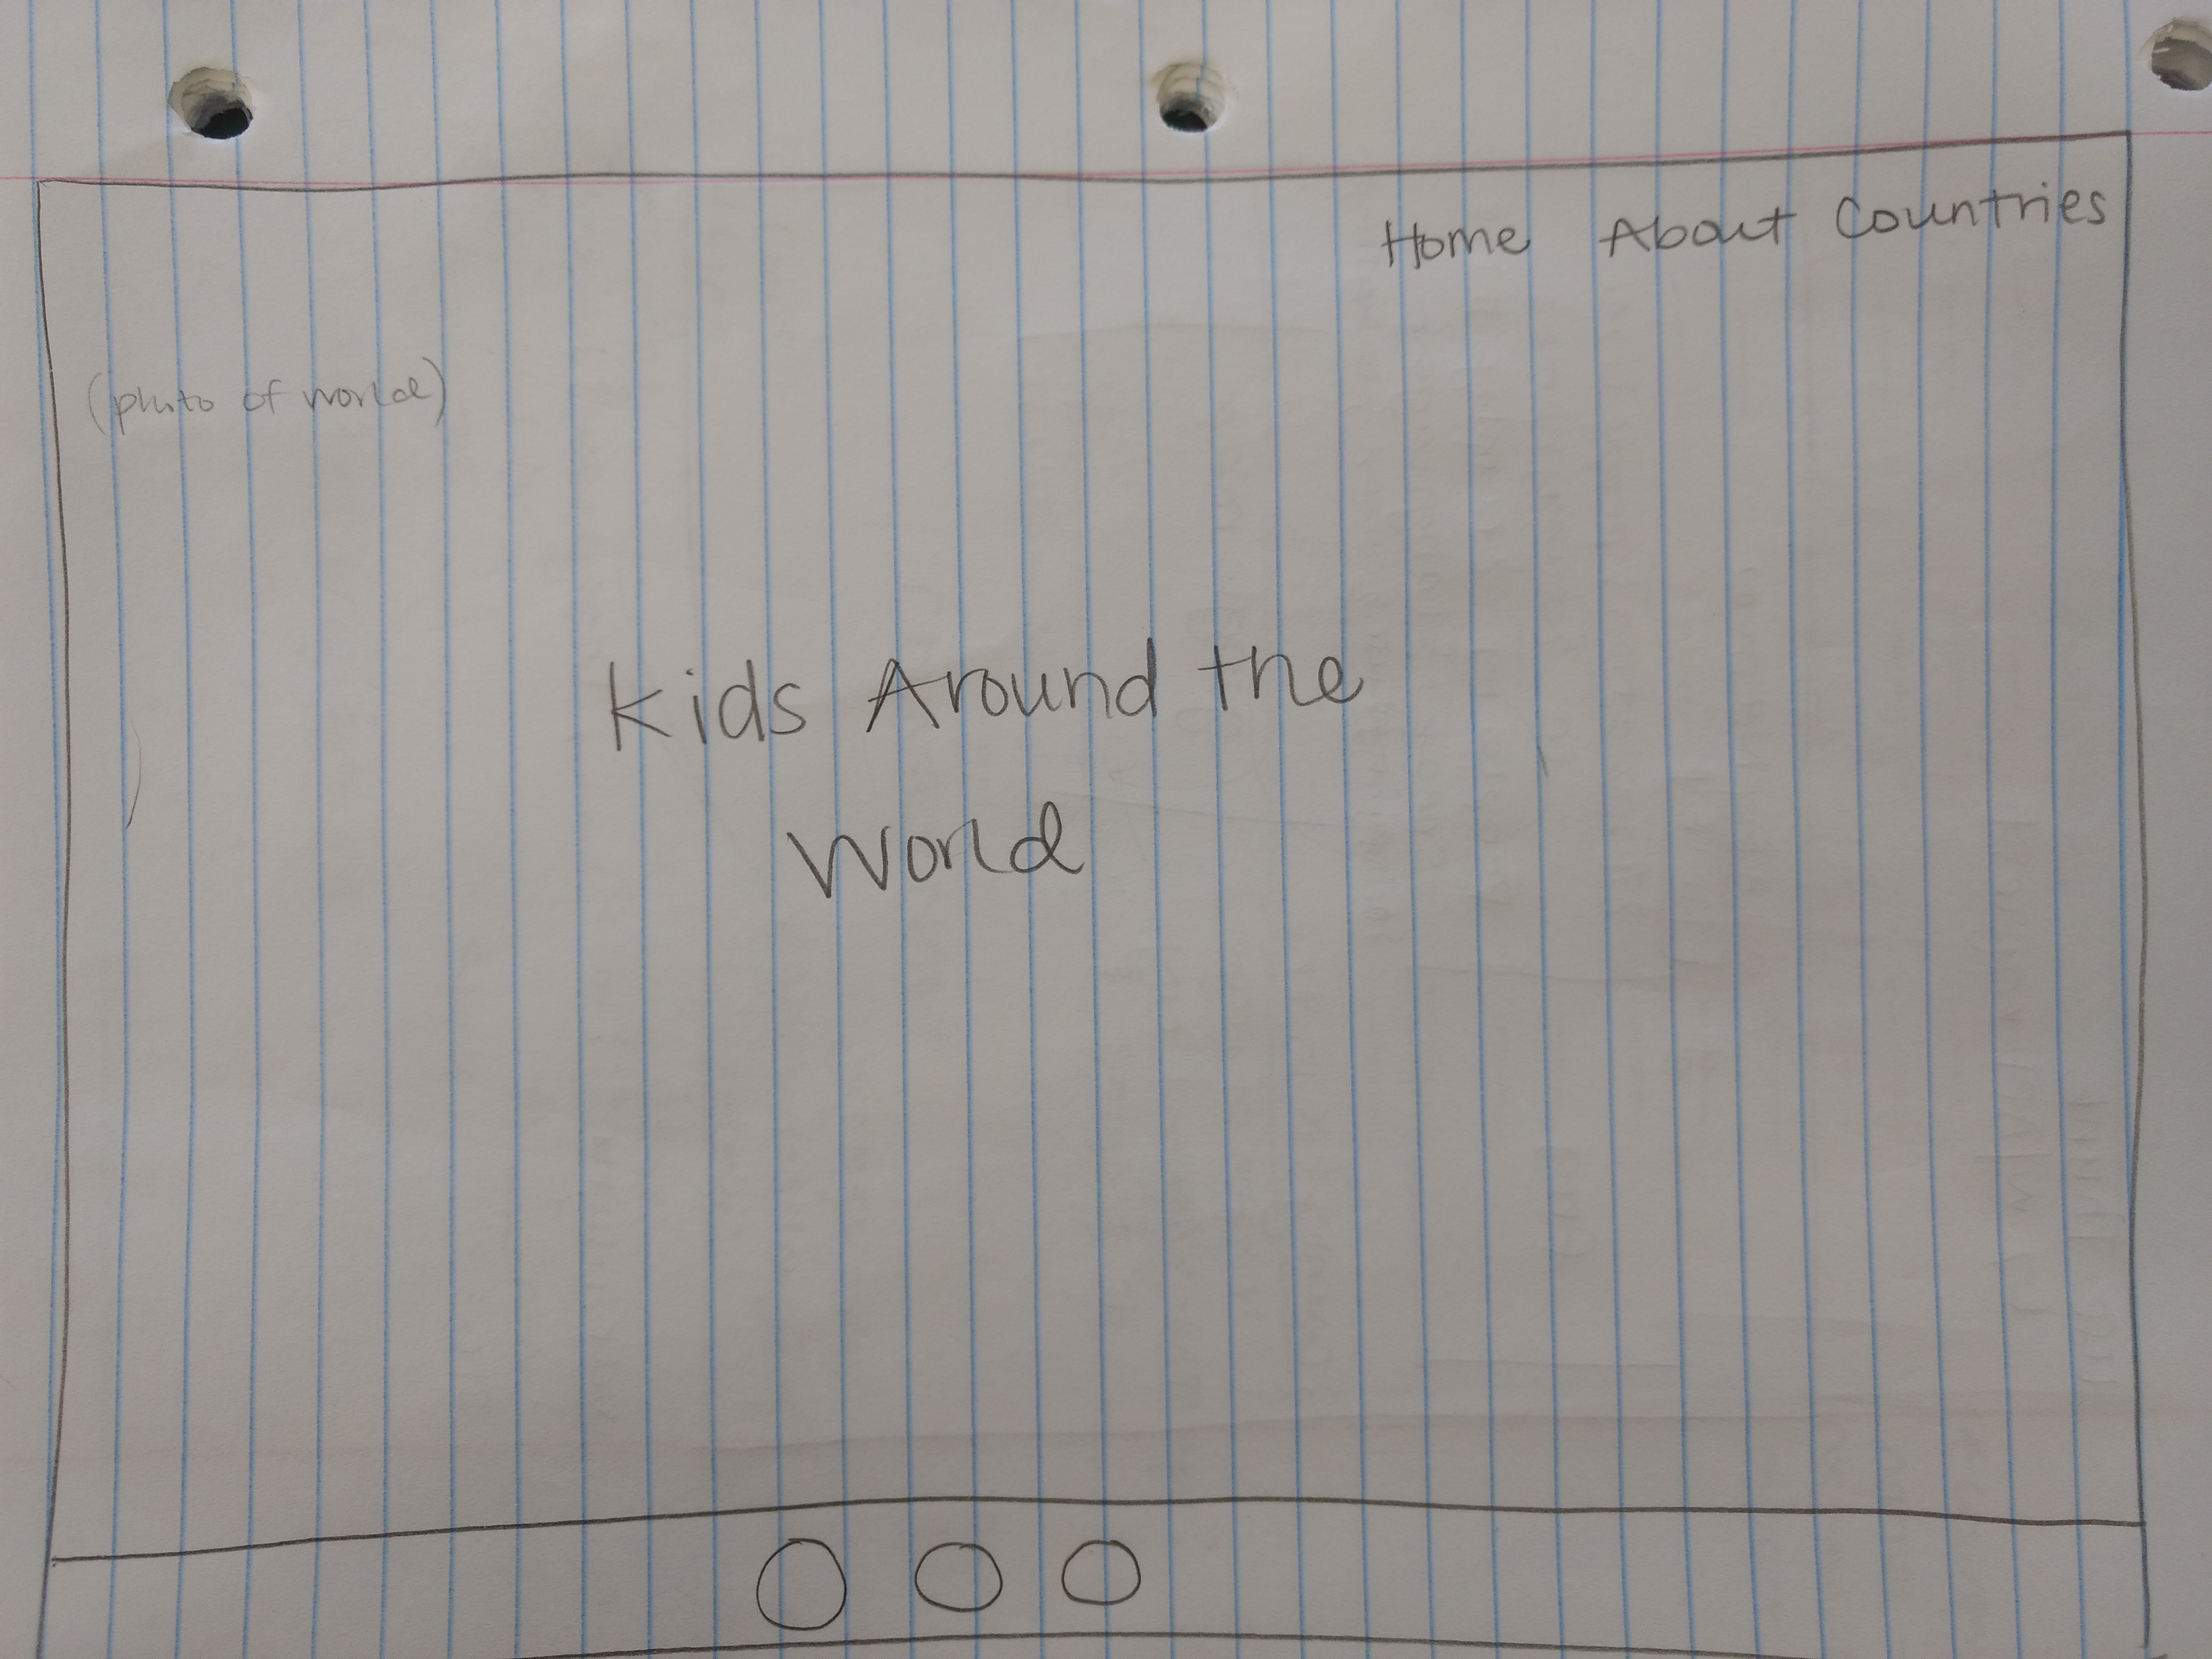 Home About Countries
(photo of world)
Kids Around the
World